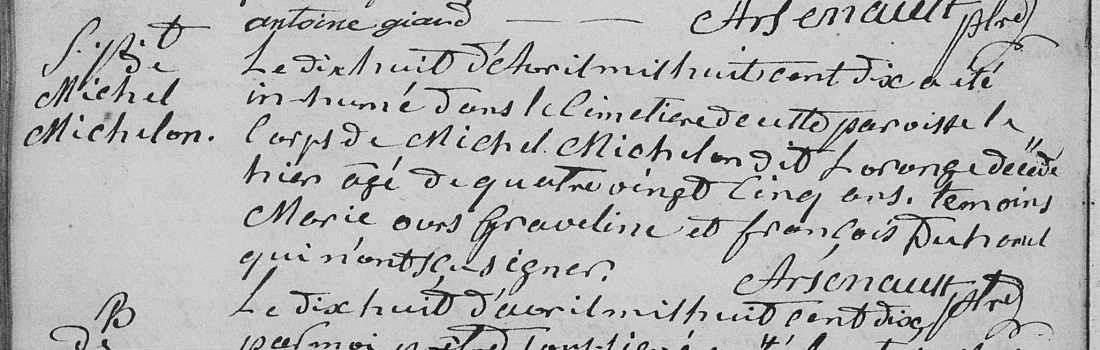 antoine giard — — Arsenault ptre
S. ptre
de
Michel
Michelon.
Le dix huit d'Avril mil huit cent dix a été
inhumé dans le Cimetiere de cette paroisse le
Corps de Michel Michelon dit Lorange décédé
hier agé de quatre vingt cinq ans. temoins
Marie ours Graveline et françois
qui n'ont sçu signer. Arsenault ptre
B Le dix huit d'avril mil huit cent dix,
de par moi, ptre soussigné